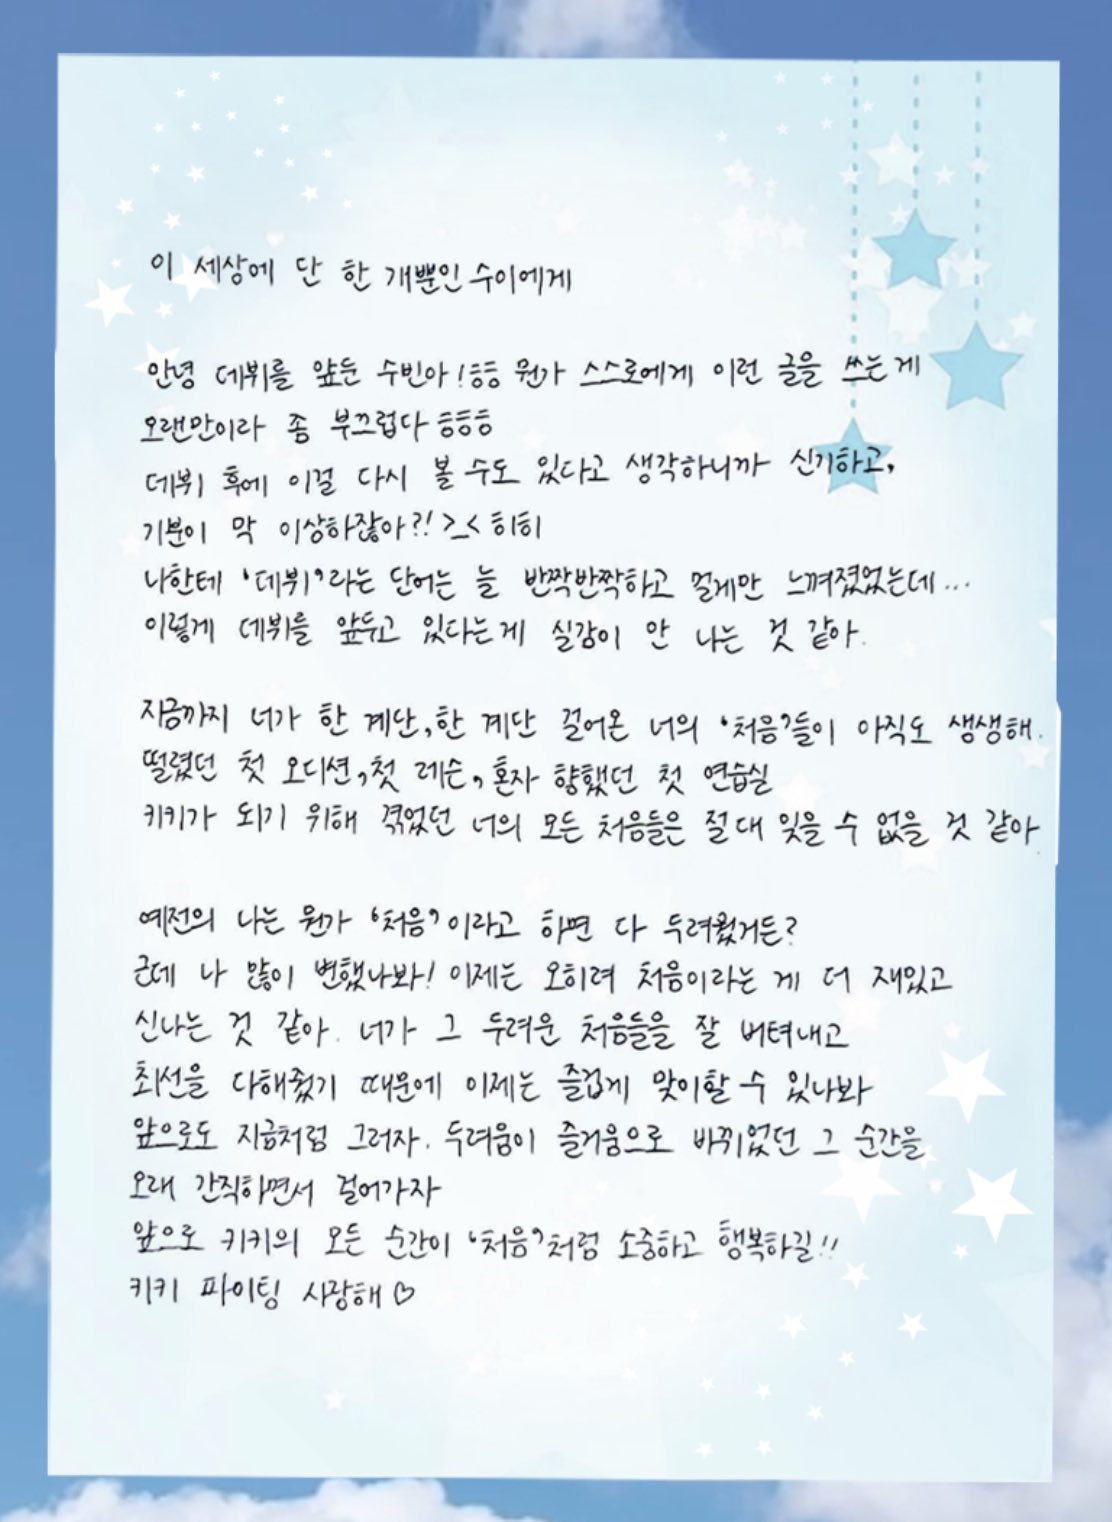 이 세상에 단 한 개뿐인 수이에게
안녕 데뷔를 앞둔 수빈아!ㅎㅎ 뭔가 스스로에게 이런 글을 쓰는 게
오랜만이라 좀 부끄럽다 ㅎㅎㅎ
데뷔 후에 이걸 다시 볼 수도 있다고 생각하니까 신기하고,
기분이 막 이상하잖아?! >_< 히히
나한테 '데뷔'라는 단어는 늘 반짝반짝하고 멀게만 느껴졌었는데...
이렇게 데뷔를 앞두고 있다는게 실감이 안 나는 것 같아.
지금까지 너가 한 계단, 한 계단 걸어온 너의 '처음'들이 아직도 생생해.
떨렸던 첫 오디션, 첫 레슨, 혼자 향했던 첫 연습실
키키가 되기 위해 겪었던 너의 모든 처음들은 절대 잊을 수 없을 것 같아.
예전의 나는 뭔가 '처음'이라고 하면 다 두려웠거든?
근데 나 많이 변했나봐! 이제는 오히려 처음이라는 게 더 재밌고
신나는 것 같아. 너가 그 두려운 처음들을 잘 버텨내고
최선을 다해줬기 때문에 이제는 즐겁게 맞이할 수 있나봐
앞으로도 지금처럼 그러자. 두려움이 즐거움으로 바뀌었던 그 순간을
오래 간직하면서 걸어가자
앞으로 키키의 모든 순간이 '처음'처럼 소중하고 행복하길!!
키키 파이팅 사랑해♡